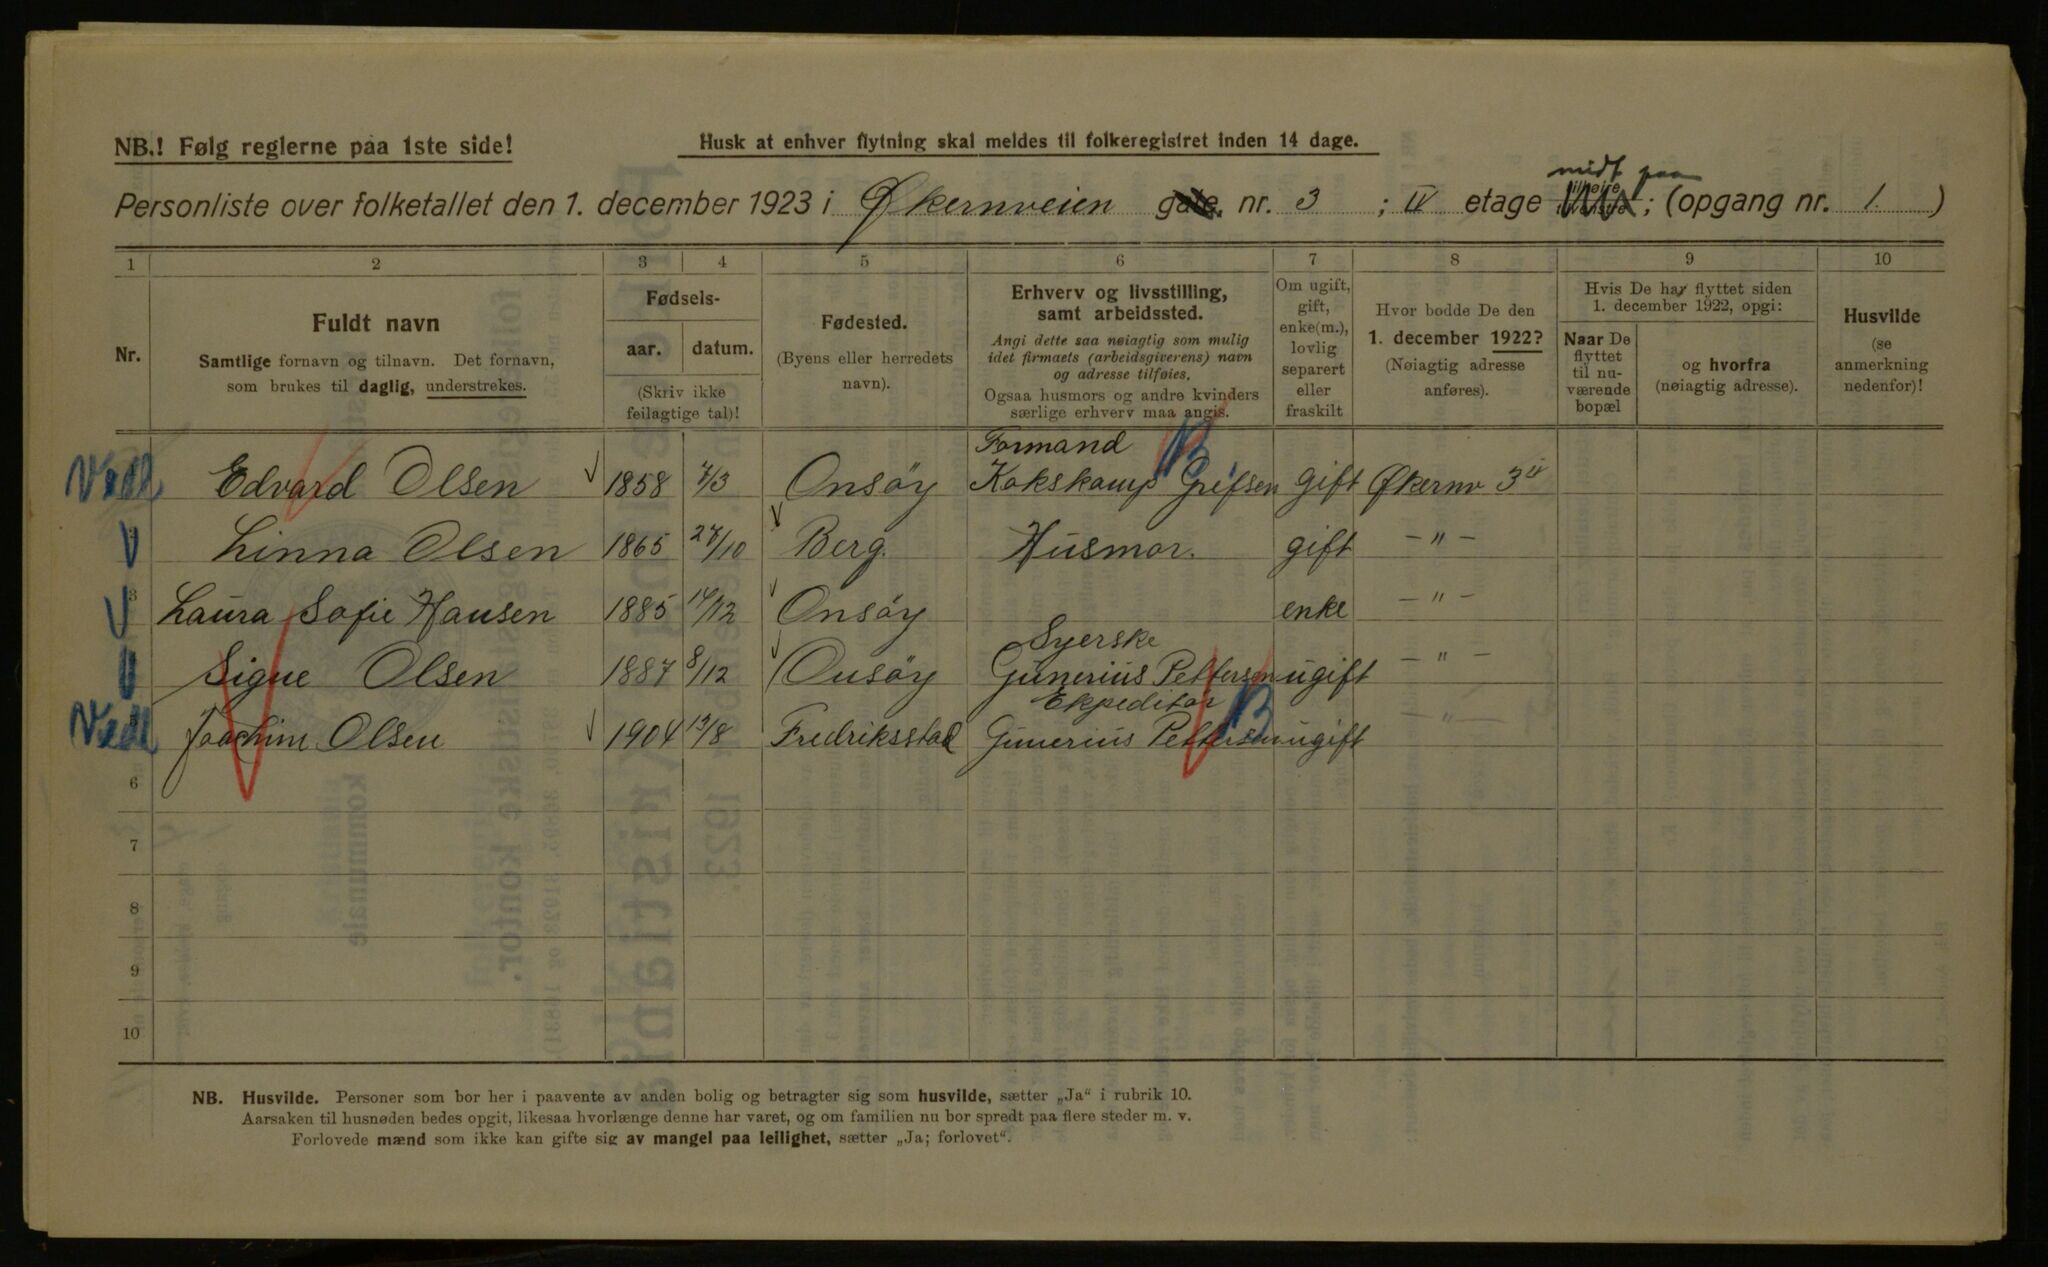 NB.! Følg reglerne paa 1ste side!
Husk at enhver flytning skal meldes til folkeregistret inden 14 dage.
midt paa
Personliste over folketallet den 1. december 1923 i Økernveien gate, nr. 3 ; IV etage ; (opgang nr. 1. )
1 2 3 4 5 6 7 8 9 10
Nr.
Fuldt navn
Samtlige fornavn og tilnavn. Det fornavn,
som brukes til daglig, understrekes.
Fødsels-
aar. datum.
(Skriv ikke
feilagtige tal)!
Fødested.
(Byens eller herredets
navn).
Erhverv og livsstilling,
samt arbeidssted.
Angi dette saa nøiagtig som mulig
idet firmaets (arbeidsgiverens) navn
og adresse tilføies.
Ogsaa husmors og andre kvinders
særlige erhverv maa angis.
Om ugift,
gift,
enke(m.),
lovlig
separert
eller
fraskilt
Hvor bodde De den
1. december 1922?
(Nøiagtig adresse
anføres).
Hvis De har flyttet siden
1. december 1922, opgi:
Naar De
flyttet
til nu-
værende
bopæl
og hvorfra
(nøiagtig adresse).
Husvilde
(se
anmerkning
nedenfor)!
Formand
Edvard Olsen 1858 7/3 Onsöy Kokskamp Grefsen gift Økernv 3 IV
Linna Olsen 1865 27/10 Berg. Husmor. gift – " –
3 Laura Sofie Hansen 1885 14/12 Onsöy enke – " –
Syerske
Signe Olsen 1887 8/12 Onsöy Gunerius Pettersen ugift – " –
Ekpeditör
Joachim Olsen 1904 13/8 Fredriksstad Gunerius Pettersen ugift – " –
6
7
8
9
10
NB. Husvilde. Personer som bor her i paavente av anden bolig og betragter sig som husvilde, sætter „Ja“ i rubrik 10.
Aarsaken til husnøden bedes opgit, likesaa hvorlænge denne har varet, og om familien nu bor spredt paa flere steder m. v.
Forlovede mænd som ikke kan gifte sig av mangel paa leilighet, sætter „Ja; forlovet“.